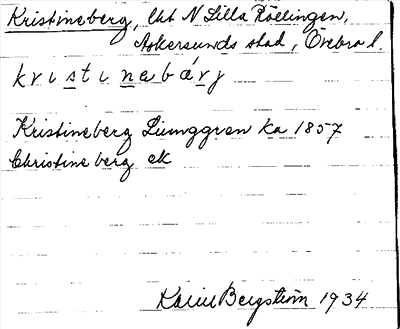 Kristineberg, lht N Lilla Röelingen,
Askersunds stad, Örebro l.
kristinabärj
Kristineberg Ljunggren Ka 1857
Christineberg ek
Karin Bergström 1934